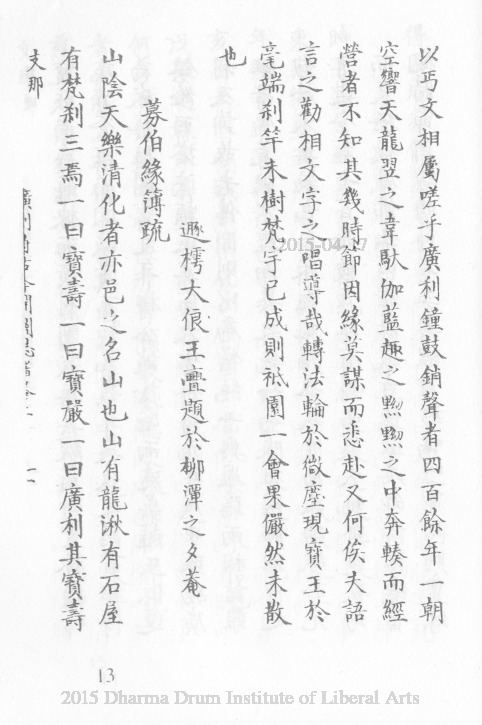 以丐文相屬嗟乎廣利鐘鼓銷聲者四百餘年一朝
空響天龍翌之韋馱伽藍趣之黙黙之中奔輳而經
營者不知其幾時節因緣莫謀而悉赴又何俟夫語
言之勸相文字之唱導哉轉法輪於微塵現寶王於
毫端刹竿未樹梵宇已成則祇園一會果儼然未散
也
募伯緣簿䟽
遯樗大俍王亹題於柳潭之夕菴
山陰天樂清化者亦邑之名山也山有龍湫有石屋
有梵刹三焉一曰寶壽一曰寶嚴一曰廣利其寶壽
支那
13
2015-04-17
2015 Dharma Drum Institute of Liberal Arts